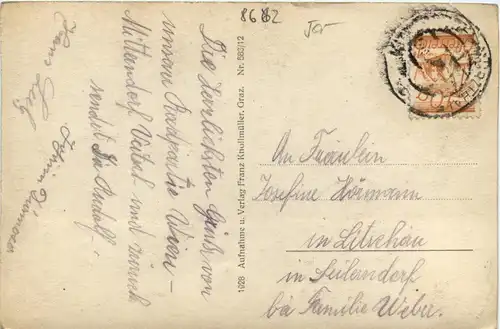 8682
Die herzlichsten Grüße von
unserer Radpartie Wien –
Mittendorf Veitsch und zurück
sendet Ihr Rudolf.
Hans
1928 Aufnahme u. Verlag Franz Knollmüller, Graz. Nr. 583/12
An Fräulein
Josefine Hörmann
in Litschau
in Seilendorf
bei Familie Weber.